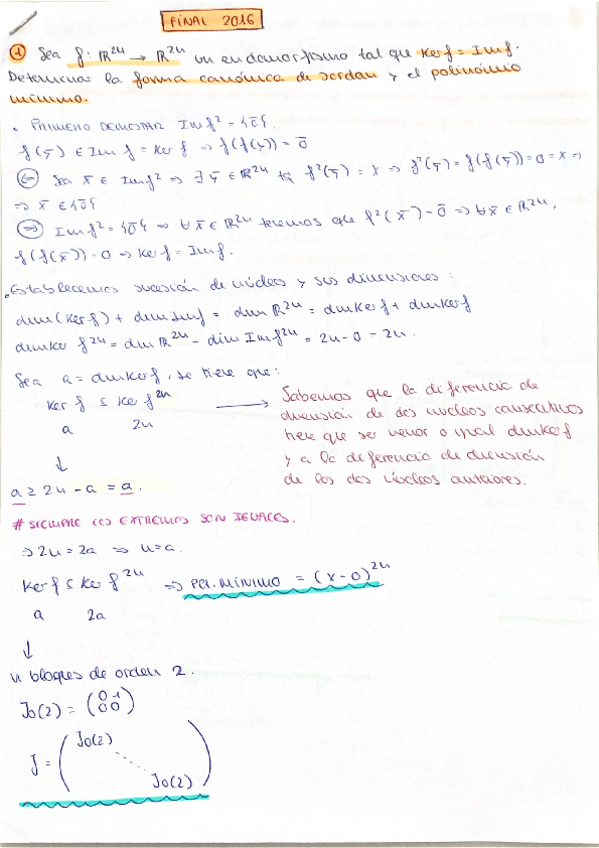 FINAL 2016
① Sea f: ℝ²ⁿ → ℝ²ⁿ un endomorfismo tal que Kerf = Imf.
Determinar la forma canónica de Jordan y el polinomio
mínimo.
• PRIMERO DEMOSTRAR Imf² = {0̄}.
f(ȳ) ∈ Imf = Kerf ⇒ f(f(ȳ)) = 0̄
⇐ Sea x̄ ∈ Imf² ⇒ ∃ ȳ ∈ ℝ²ⁿ tq f²(ȳ) = x ⇒ f²(ȳ) = f(f(ȳ)) = 0 = x ⇒
⇒ x̄ ∈ {0̄}
⇒ Imf² = {0̄} ⇒ ∀x̄ ∈ ℝ²ⁿ tenemos que f²(x̄) = 0̄ ⇒ ∀x̄ ∈ ℝ²ⁿ,
f(f(x̄)) = 0 ⇒ Kerf = Imf.
• Establecemos sucesión de núcleos y sus dimensiones:
dim(Kerf) + dim Imf = dim ℝ²ⁿ = dimKerf + dimKerf
dimKer f²ⁿ = dim ℝ²ⁿ - dim Imf²ⁿ = 2n - 0 = 2n.
Sea a = dimKerf, se tiene que:
Ker f ≤ Ker f²ⁿ →
a 2n
Sabemos que la diferencia de
dimensión de dos nucleos consecutivos
tiene que ser menor o igual dimkerf
y a la diferencia de dimensión
de los dos núcleos anteriores.
↓
a ≥ 2n - a = a.
# SIEMPRE LOS EXTREMOS SON IGUALES.
⇒ 2n = 2a ⇒ n = a.
Ker f ≤ Ker f²ⁿ ⇒ POL. MÍNIMO = (x - 0)²ⁿ
a 2a
↓
n bloques de orden 2.
J₀(2) = (0 1
0 0)
J = (J₀(2)
⋱
J₀(2))